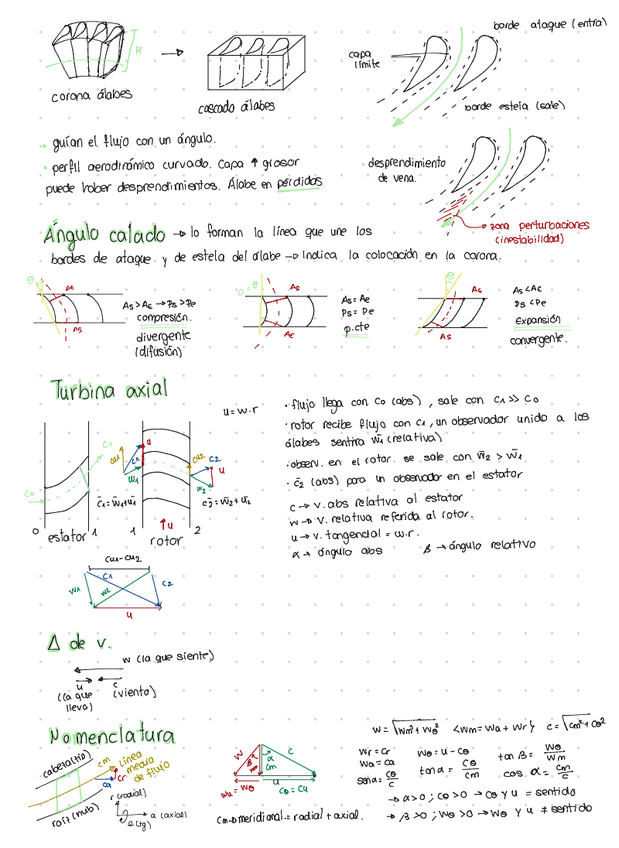 H
corona álabes
cascada álabes
borde ataque (entra)
capa
límite
borde estela (sale)
guían el flujo con un ángulo.
perfil aerodinámico curvado. Capa ↑ grosor
puede haber desprendimientos. Álabe en pérdidas
desprendimiento
de vena.
zona perturbaciones
(inestabilidad)
Ángulo calado → lo forman la línea que une los
bordes de ataque y de estela del álabe → Indica la colocación en la corona.
θ
Ae
As
As > Ae → Ps > Pe
compresión.
divergente
(difusión)
θ = 0
As
Ae
As = Ae
Ps = Pe
p.cte
θ
Ae
As
As < Ae
Ps < Pe
Expansión
convergente.
Turbina axial
u = w.r
· flujo llega con C0 (abs), sale con C1 >> C0
· rotor recibe flujo con C1, un observador unido a los
álabes sentirá w1 (relativa)
· observ. en el rotor se sale con w2 > w1.
· c2 (abs) para un observador en el estator
c → v. abs relativa al estator
w → v. relativa referida al rotor.
u → v. tangencial = w.r.
α → ángulo abs β → ángulo relativo
C0
C1
Cu1
C1
u
w1
C1 = w1 + u1
Cu2
C2
u
w2
c2 = w2 + u2
0 estator 1 1 rotor 2
u
Cu1 - Cu2
w1
C1
w2
C2
u
Δ de v.
w (la que siente)
u
(la que
llevo)
c
(viento)
Nomenclatura
cabeza (tip)
cm
Línea
media
de flujo
Cr
ca
r (radial)
a (axial)
θ (tg)
raíz (hub)
w
β
α
c
Cm
u
wu = wθ
Cθ = Cu
Cm → meridional = radial + axial.
w = √wm² + wθ² < wm = wa + wr > c = √cm² + cθ²
wr = cr
wa = ca
wθ = u - cθ
tan β = wθ/wm
sen α = cθ/c
tan α = cθ/cm
cos α = cm/c
→ α > 0 ; cθ > 0 → cθ y u = sentido
→ β > 0 ; wθ > 0 → wθ y u ≠ sentido